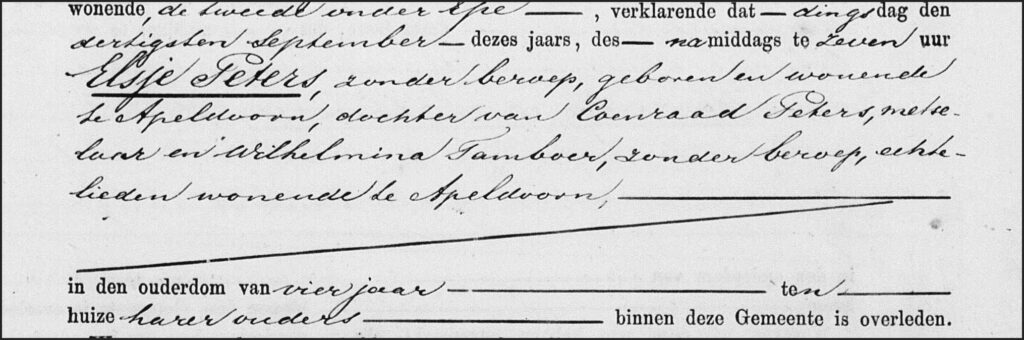 wonende, de tweede onder Epe —, verklarende dat — dingsdag den
dertigsten September — dezes jaars, des — namiddags te zeven uur
Elsje Peters, zonder beroep, geboren en wonende
te Apeldoorn, dochter van Coenraad Peters, metse-
laar en Wilhelmina Tamboer, zonder beroep, echte-
lieden wonende te Apeldoorn, —
in den ouderdom van vier jaar — ten —
huize harer ouders — binnen deze Gemeente is overleden.